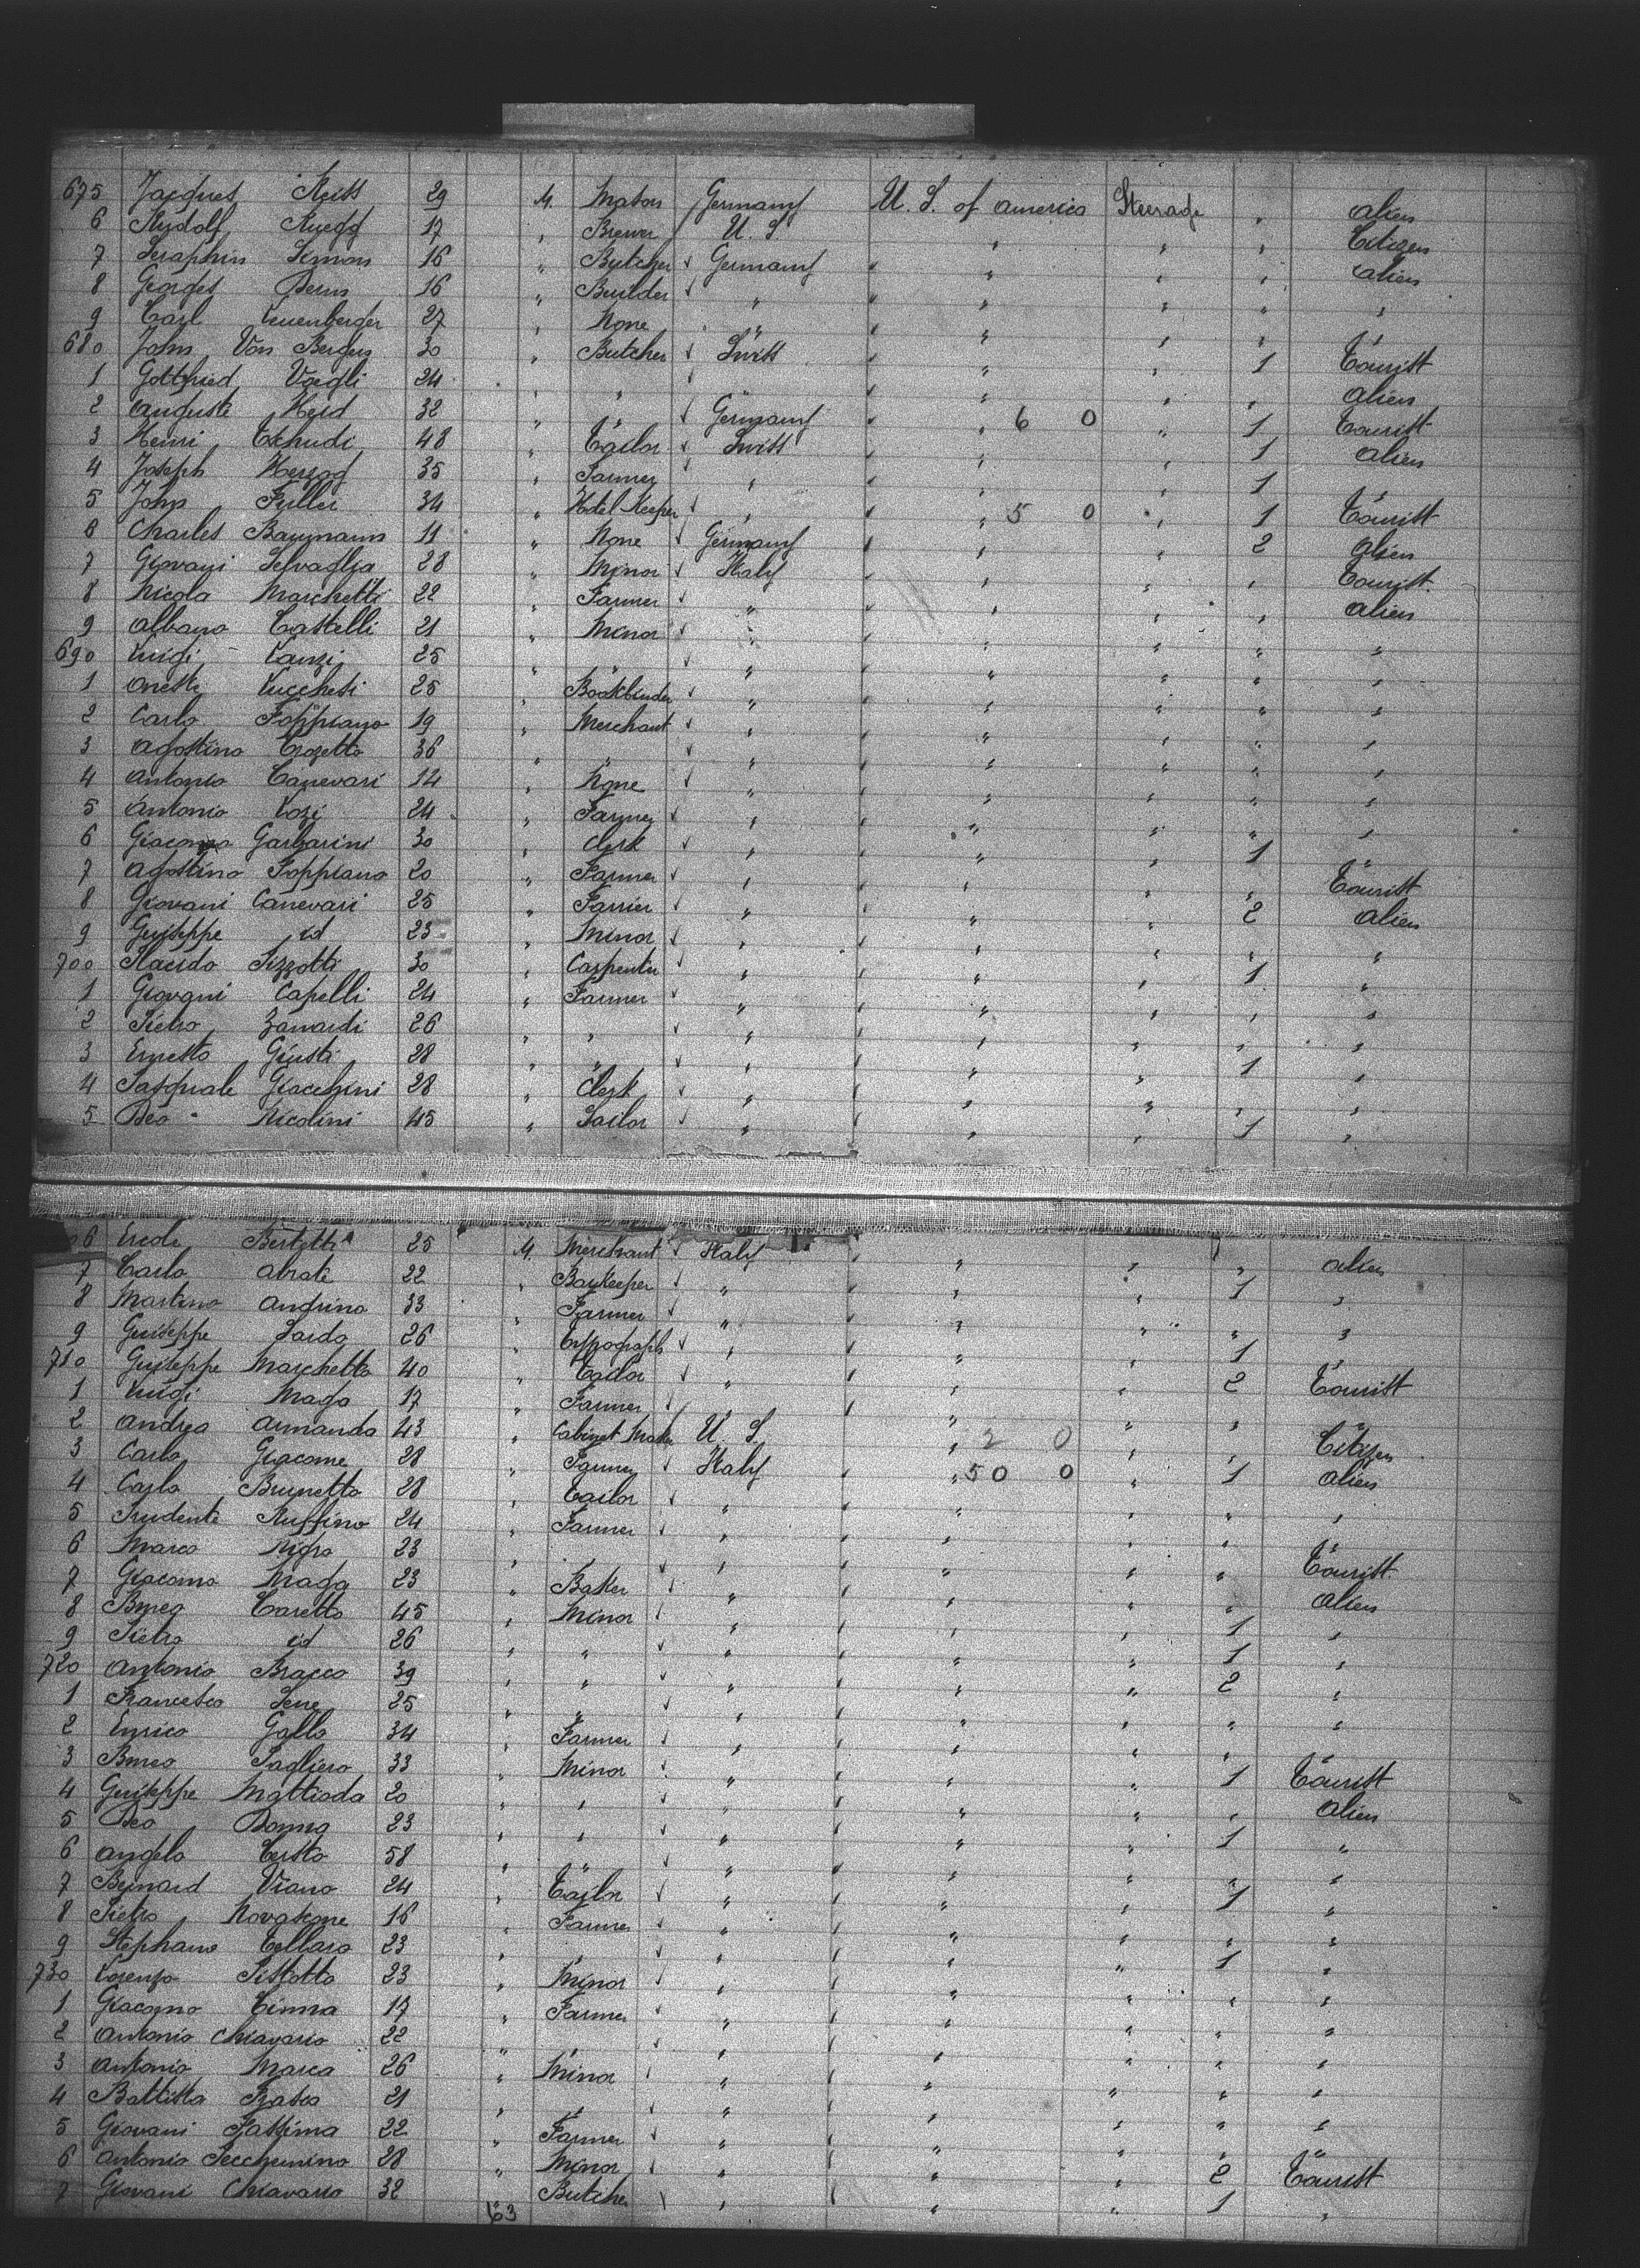 675 Jacques Reiss 29 M. Mason Germany U. S. of america Steerage " alien
6 Rudolf Ruegg 17 " Brewer U. S. " " " Citizen
7 Seraphin Simon 16 " Butcher Germany " " " alien
8 Georges 16 " Builder " " " " "
9 Carl Luenberger 27 " None " " " " "
680 John Von Bergen 30 " Butcher Swiss " " 1 Tourist
1 Gottfried Voegli 24 " " " " " " alien
2 auguste Heid 32 " " Germany " 6 0 " 1 Tourist
3 Henri Tschudi 48 " Tailor Swiss " " 1 alien
4 Joseph Herzog 35 " Farmer " " " 1 "
5 John Fuller 34 " Hotel Keeper " " 5 0 " 1 Tourist
6 Charles Baumann 11 " None Germany " " 2 alien
7 Giovani Selvaglia 28 " Minor Italy " " " Tourist
8 Nicola Marchetti 22 " Farmer " " " " alien
9 albano Castelli 21 " Minor " " " " "
690 Luigi Lanzi 25 " " " " " " "
1 oreste Lucchesi 25 " Bookbinder " " " " "
2 Carlo Foppiano 19 " Merchant " " " " "
3 agostino Crozetto 36 " " " " " " "
4 antonio Canevari 14 " None " " " " "
5 antonio Lozi 24 " Farmer " " " " "
6 Giacomo Garbarini 30 " Clerk " " " 1 "
7 agostino Foppiano 20 " Farmer " " " " Tourist
8 Giovani Canevari 25 " Farrier " " " 2 alien
9 Guiseppe id 23 " Minor " " " " "
700 Placido Pizzotti 30 " Carpenter " " " 1 "
1 Giovani Capelli 24 " Farmer " " " " "
2 Pietro Zanardi 26 " " " " " " "
3 Ernesto Giusti 28 " " " " " 1 "
4 Pasquale Giacchini 28 " Clerk " " " " "
5 Beo Nicolini 45 " Sailor " " " 1 "
6 Erede Bertetti 25 M. Merchant Italy " " " alien
7 Carlo abrate 22 " Barkeeper " " " 1 "
8 Martino andrino 33 " Farmer " " " " "
9 Guiseppe Sardo 26 " Typograph " " " 1 "
710 Guiseppe Marchetto 40 " Tailor " " " 2 Tourist
1 Luigi Maga 17 " Farmer " " " " "
2 andrea armando 43 " Cabinet Maker U. S. " 2 0 " " Citizen
3 Carlo Giacome 28 " Farmer Italy " 50 0 " 1 alien
4 Carlo Brunetto 28 " Tailor " " " " "
5 Prudente Ruffino 24 " Farmer " " " " "
6 Marco Nigro 23 " " " " " " Tourist
7 Giacomo Maga 23 " Baker " " " " alien
8 Bmeo Caretto 45 " Minor " " " 1 "
9 Pietro id 26 " " " " " 1 "
720 antonio Bracco 39 " " " " " 2 "
1 Francesco Sene 25 " " " " " " "
2 Enrico Gallo 34 " Farmer " " " " "
3 Bmeo Pagliero 33 " Minor " " " 1 Tourist
4 Guiseppe Mattioda 20 " " " " " " alien
5 Beo Bonna 23 " " " " " 1 "
6 angelo Cersto 58 " " " " " " "
7 Bernard Viano 24 " Tailor " " " 1 "
8 Pietro Novascone 16 " Farmer " " " " "
9 Stephano Cellaro 23 " " " " " 1 "
730 Lorenzo Pistotto 23 " Minor " " " " "
1 Giacomo Cimma 17 " Farmer " " " " "
2 antonio Chiavario 22 " " " " " " "
3 antonio Marca 26 " Minor " " " " "
4 Battista Frasca 21 " " " " " " "
5 Giovani Fassima 22 " Farmer " " " " "
6 antonio Secchemino 28 " Minor " " " 2 Tourist
7 Giovani Chiavario 32 " Butcher " " " 1 "
63